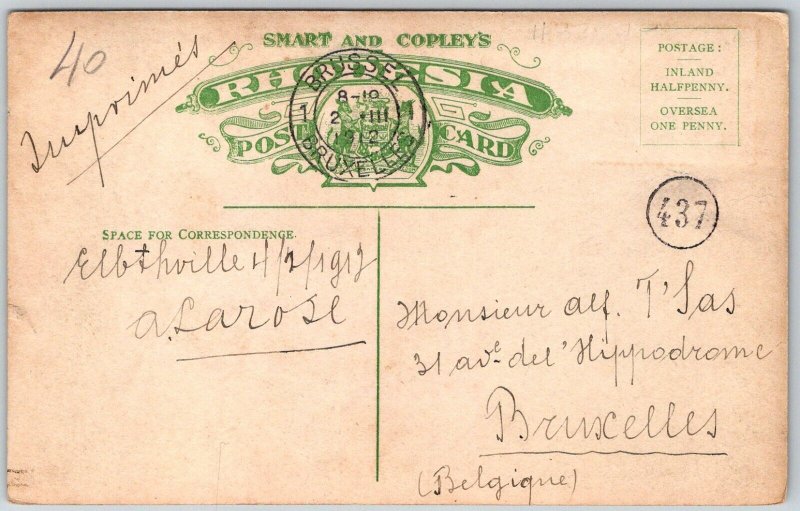 40
Imprimés
SMART AND COPLEY'S
RHODESIA
POST CARD
BRUSSEL
1 8-19 1
2 III
1912
BRUXELLES
POSTAGE:
INLAND
HALFPENNY.
OVERSEA
ONE PENNY.
437
SPACE FOR CORRESPONDENCE.
Elbthville 4/2/1912
A. Larose
Monsieur Alf. T'Sas
31 ave del'Hippodrome
Bruxelles
(Belgique)